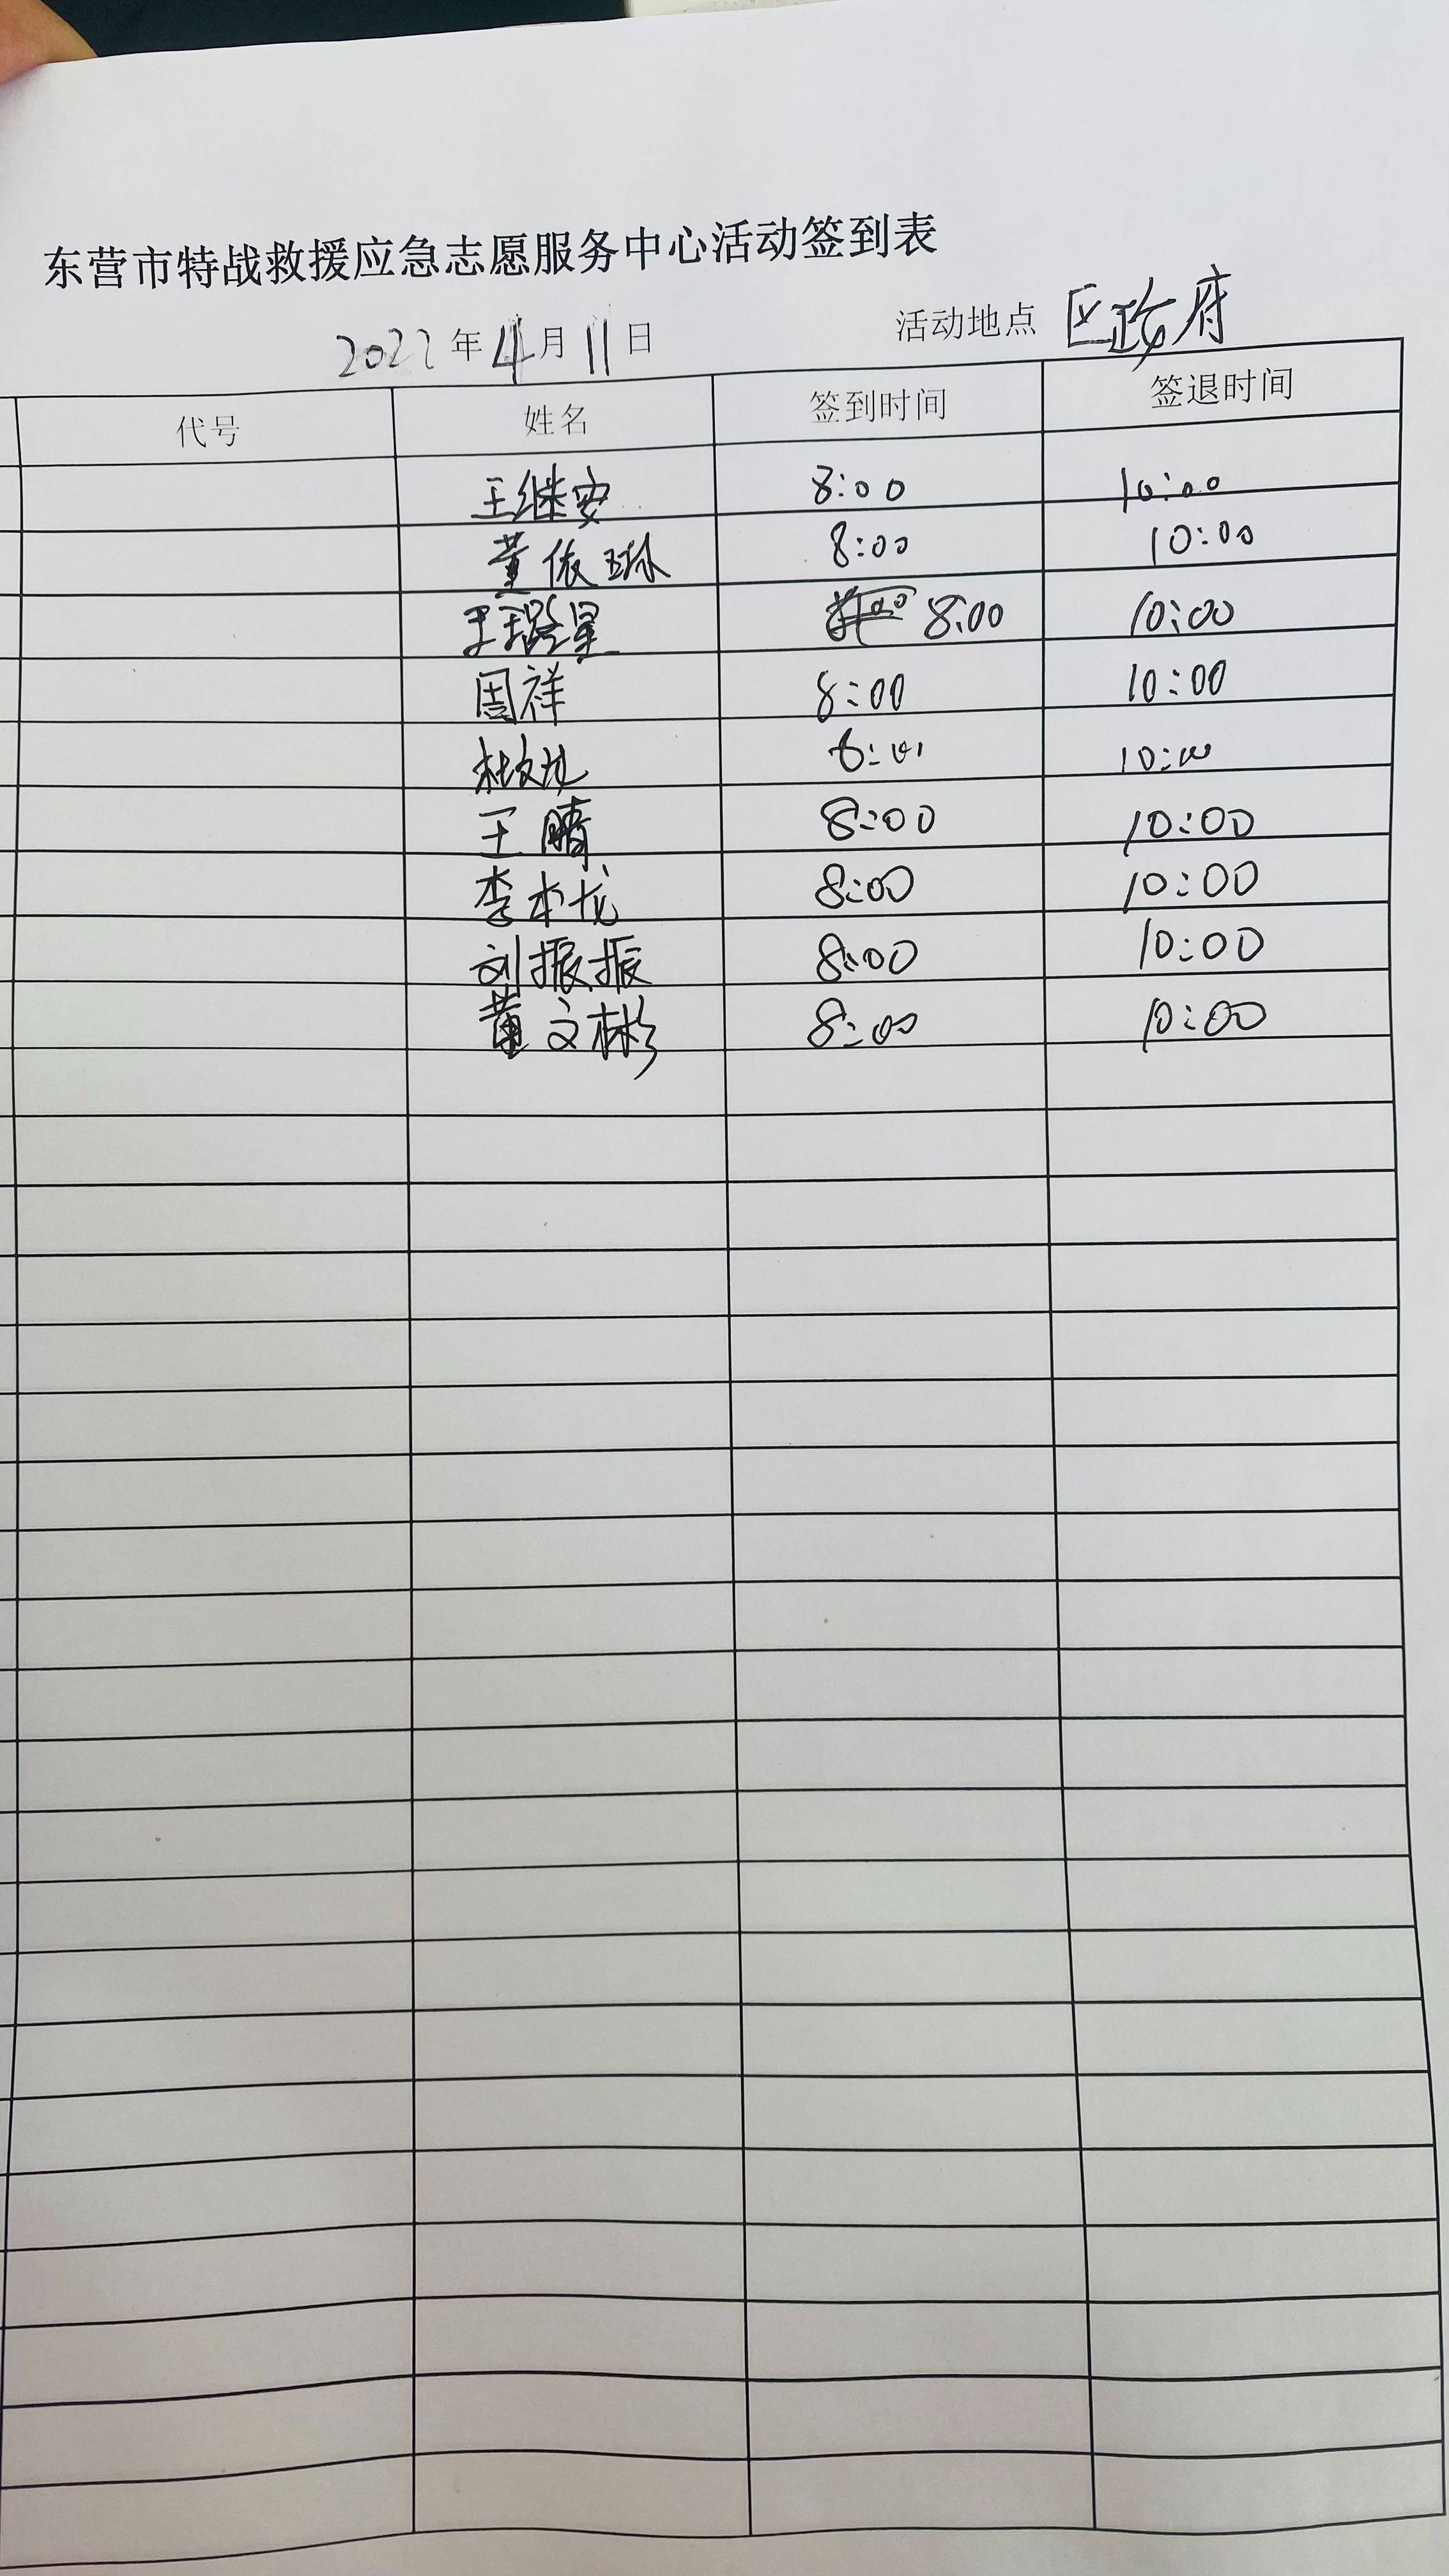 东营市特战救援应急志愿服务中心活动签到表
2022年4月11日 活动地点 区政府
代号 姓名 签到时间 签退时间
王继安 8:00 10:00
董依琳 8:00 10:00
王璐星 8:00 10:00
周祥 8:00 10:00
杜文龙 10:00
王晴 8:00 10:00
李本龙 8:00 10:00
刘振振 8:00 10:00
黄文彬 8:00 10:00